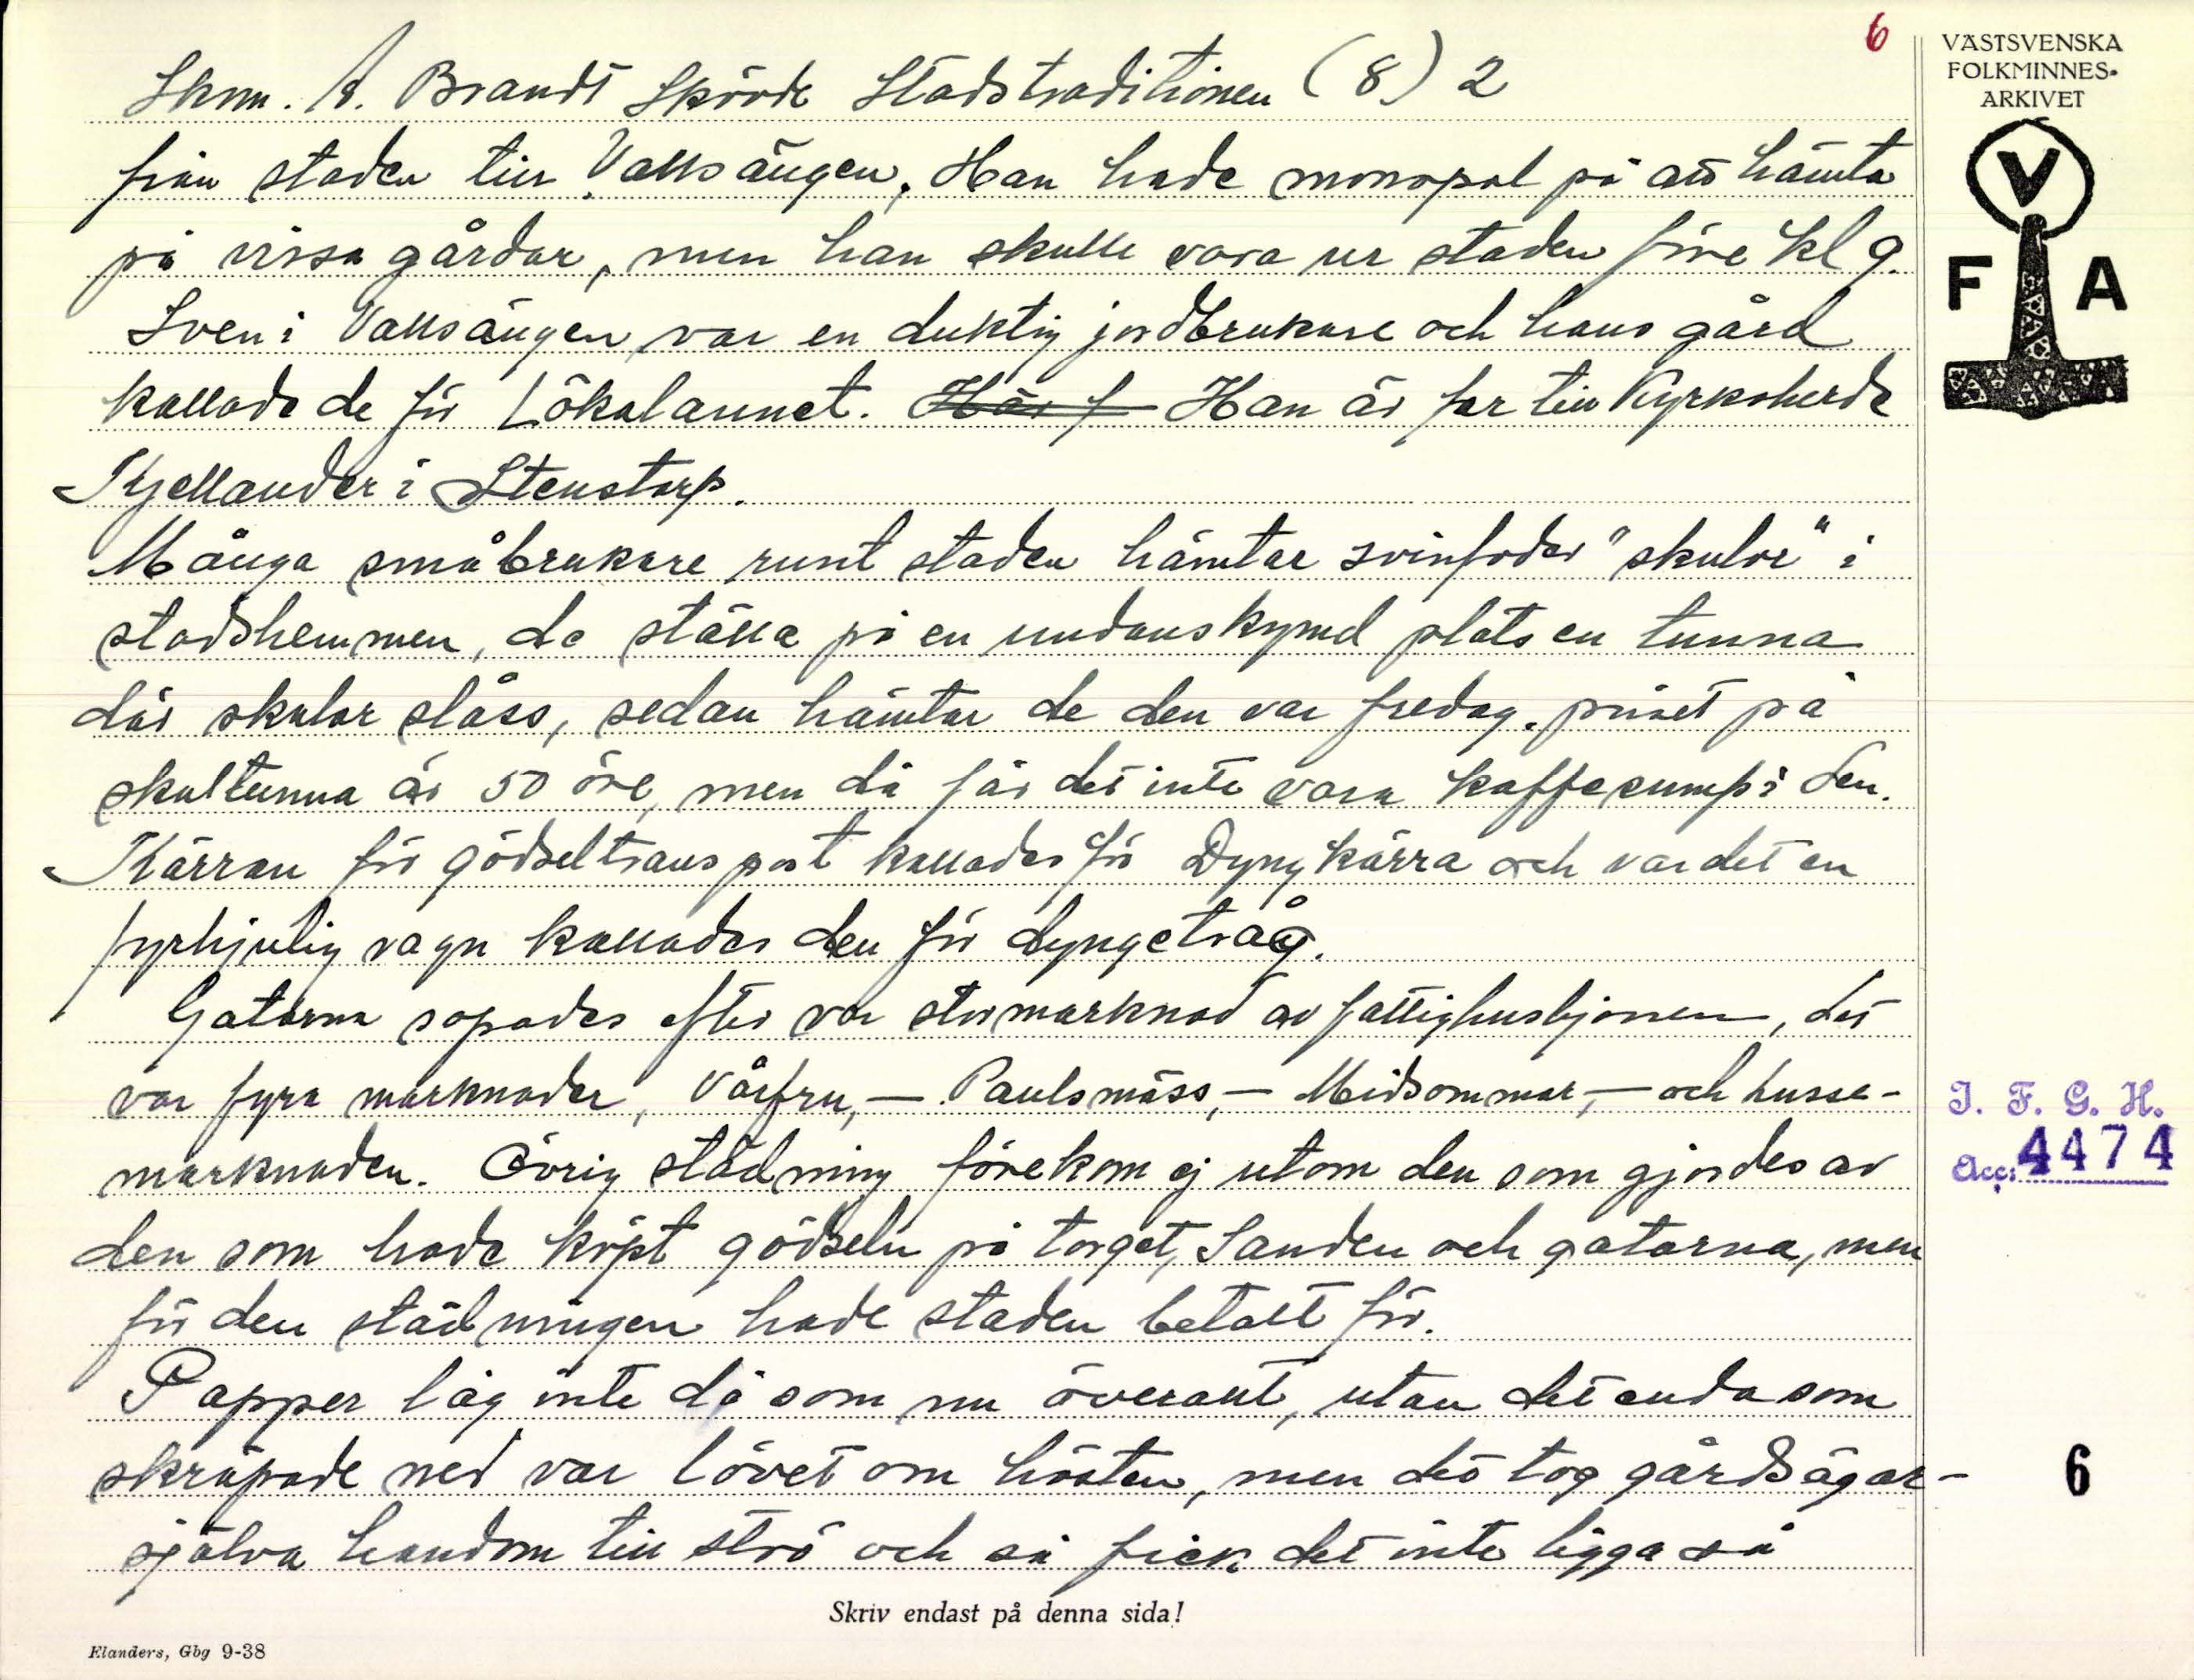 6
VÄSTSVENSKA
FOLKMINNES-
ARKIVET
V
F A
Skrm. A. Brandt Skövde Stadstraditionen (8) 2
från staden till Vallsängen. Han hade monopol på att hämta
på vissa gårdar, men han skulle vara ur staden före kl 9.
Sven i Vallsängen var en duktig jordbrukare och hans gård
kallade de för Lökalannet. Här f Han är far till Kyrkoherde
Kjellander i Stenstorp.
Många småbrukare runt staden hämtar svinfoder "skulor" i
stadshemmen, de ställa på en undanskymd plats en tunna
där skulor slåss, sedan hämtar de den var fredag. priset på
skultunna är 50 öre, men då får det inte vara kaffesump i den.
Kärran för gödseltransport kallades för Dyngkärra och var det en
fyrhjulig vagn kallades den för dyngetråg.
Gatorna sopades efter var stormarknad av fattighushjonen, det
var fyra marknader, Vårfru,- Paulsmäss,- Midsommar,- och husse-
marknaden. Övrig städning förekom ej utom den som gjordes av
den som hade köpt gödseln på torget, Sanden och gatorna, men
för den städningen hade staden betalt för.
Papper låg inte då som nu överallt, utan det enda som
skräpade ned var lövet om hösten, men det tog gårdsägar-
själva handom till strö och så fick det inte ligga så
Skriv endast på denna sida!
Elanders, Gbg 9-38
I. F. G. H.
Acc. 4474
6